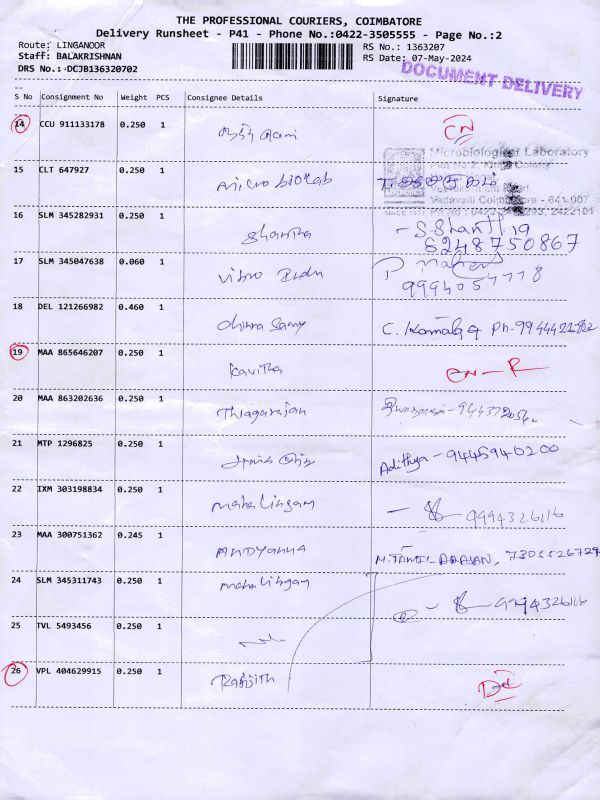 THE PROFESSIONAL COURIERS, COIMBATORE
Delivery Runsheet - P41 - Phone No.:0422-3505555 - Page No.:2
Route: LINGANOOR RS No.: 1363207
Staff: BALAKRISHNAN RS Date: 07-May-2024
DRS No.: DCJB136320702
DOCUMENT DELIVERY
S No Consignment No Weight PCS Consignee Details Signature
14 CCU 911133178 0.250 1 CN
Microbiological Laboratory
15 CLT 647927 0.250 1 Micro biolab
Vadavalli Coimbatore - 641 007
SINCE 1977
16 SLM 345282931 0.250 1 Shantha - S. Shanthi 19
8248750867
17 SLM 345047638 0.060 1
9994054778
18 DEL 121266982 0.460 1 Chinna Samy C. Komala Ph-9944421802
19 MAA 865646207 0.250 1 Kavitha CN - R
20 MAA 863202636 0.250 1 Thiagarajan
21 MTP 1296825 0.250 1 Adithya - 9445940200
22 IXM 303198834 0.250 1 Mahalingam - 9994326116
23 MAA 300751362 0.245 1 M. TAMIL ARASAN, 7305526729
24 SLM 345311743 0.250 1 Mahalingam - 9994326116
25 TVL 5493456 0.250 1
26 VPL 404629915 0.250 1 Ranjith